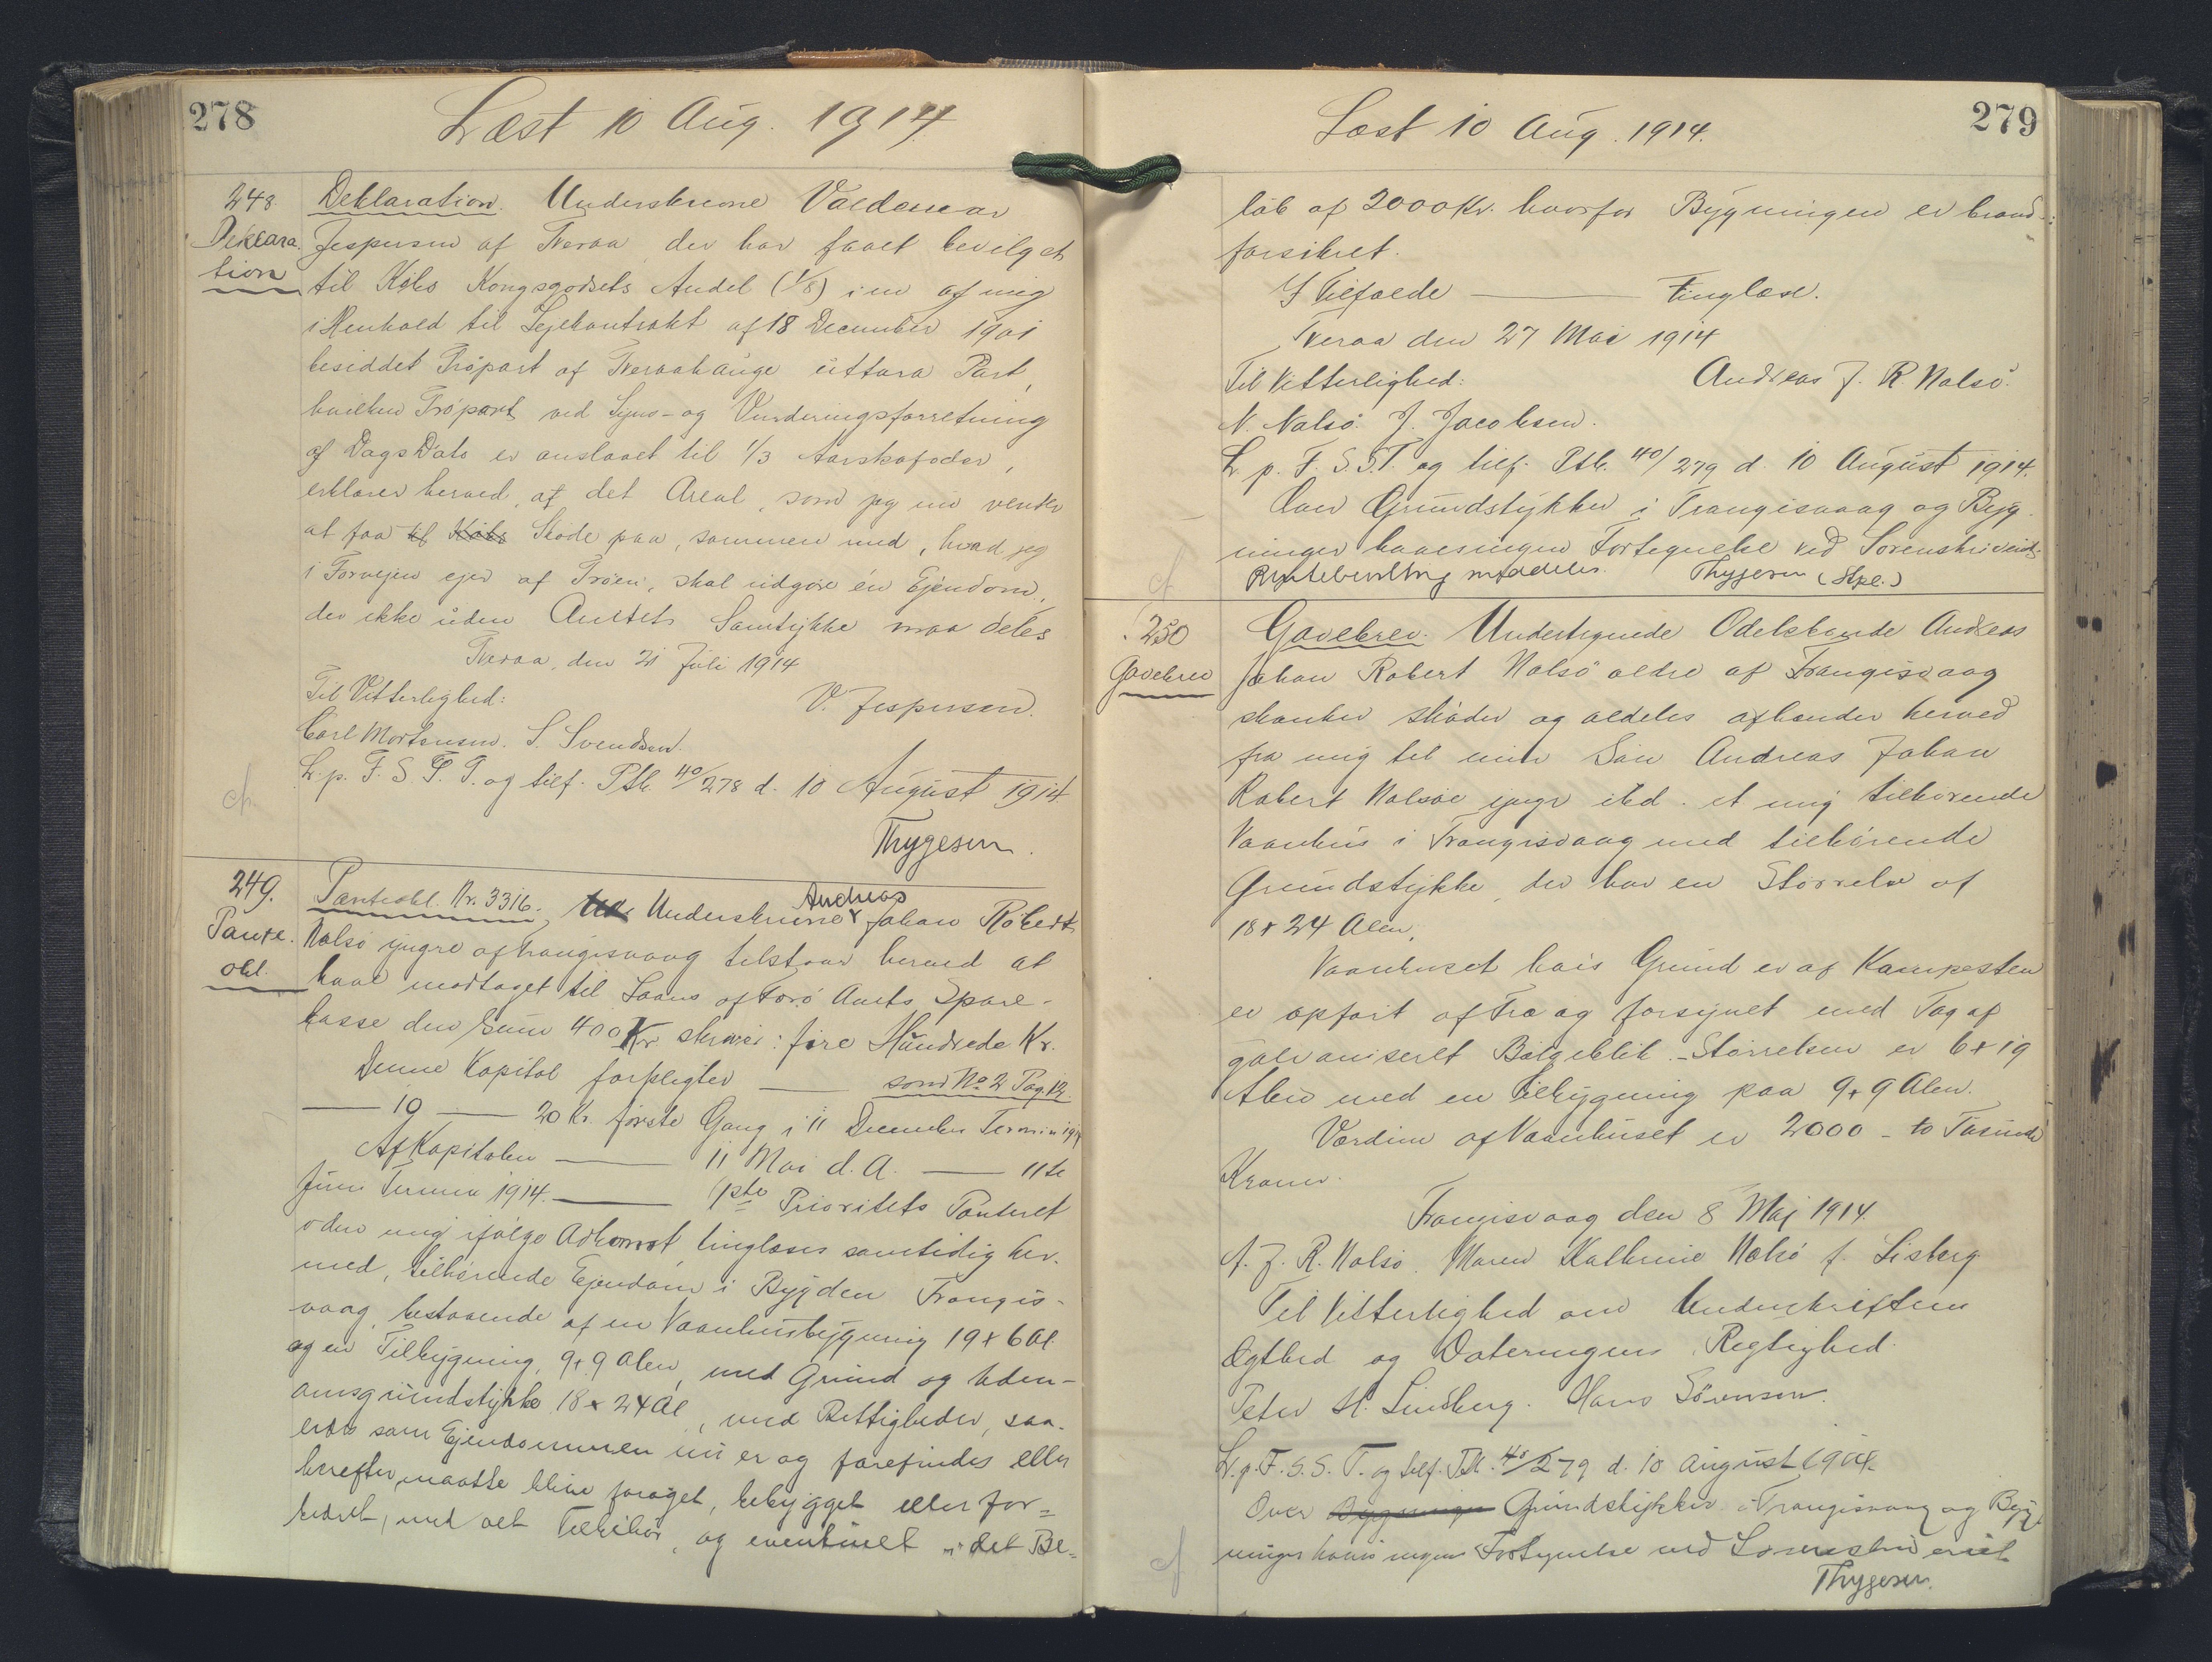 278
Læst 10 Aug. 1914.
248.
Deklara-
tion
Deklaration. Underskrevne Valdemar
Jespersen af Tveraa der har faaet bevilget
til Købs Kongsgodsets Andel (1/8) i en af mig
i Henhold til Lejekontrakt af 18 December 1901
besiddet Tröpart af Tveraahauge üttara Part,
hvilken Tröpart ved Syns- og Vurderingsforretning
af Dags Dato er anslaaet til 1/3 Aarskofoder,
erklærer herved, at det Areal, som jeg nu venter
at faa til Købs Skøde paa, sammen med, hvad jeg
i Forvejen ejer af Trøen, skal udgøre én Ejendom,
der ikke uden Amtets Samtykke maa deles
Tveraa, den 21 Juli 1914
Til Vitterlighed:
V. Jespersen.
Carl Mortensen. S. Svendsen.
L. p. F. S. S. T. og tilf. Ptb. 40/278 d. 10 August 1914
Thygesen.
249.
Pante-
obl.
Panteobl. Nr. 3316. Underskrevne Andreas Johan Robert
Nolsø yngre af Trangisvaag tilstaar herved at
have modtaget til Laans af Færø Amts Spare-
kasse den Sum 400 Kr skriver: fire Hundrede Kr.
Denne Kapital forpligter — som No 2 Pag. 12.
— 19 — 20 Kr. første Gang i 11 December Termin 1914
Af Kapitalen — 11 Mai d. A. — 11te
Juni Termin 1914. — 1ste Prioritets Panteret
i den mig ifølge Adkomst tinglæses samtidig her-
med, tilhørende Ejendom i Bygden Trangis-
vaag, bestaaende af en Vaanhusbygning 19 x 6 Al.
og en Tilbygning, 9 x 9 Alen, med Grund og Uden-
omsgrundstykke 18 x 24 Al, med Rettigheder, saa-
ledes som Ejendommen nu er og forefindes eller
herefter maatte blive forøget, bebygget eller for-
bedret, med alt Tilbehør, og eventuelt i det Be-
279
Læst 10 Aug. 1914.
løb af 2000 Kr. hvorfor Bygningen er brand-
forsikret.
I Tilfælde — Tinglæse.
Tveraa den 27 Mai 1914
Til Vitterlighed:
Andreas J. R. Nolsø.
N. Nolsø. J. Jacobsen.
L. p. F. S. S. T. og tilf. Ptb. 40/279 d. 10 August 1914.
Over Grundstykker i Trangisvaag og Byg-
ninger haves ingen Fortegnelse ved Sorenskriveriet.
meddeles. Thygesen
250
Gavebrev
Gavebrev. Undertegnede Odelsbonde Andreas
Johan Robert Nolsø ældre af Trangisvaag
skænker skøder og aldeles afhænder herved
fra mig til min Søn Andreas Johan
Robert Nolsøe yngr ibd. et mig tilhørende
Vaanhus i Trangisvaag med tilhørende
Grundstykke, der har en Størrelse af
18 x 24 Alen.
Vaanhuset hvis Grund er af Kampesten
er opført af Træ og forsynet med Tag af
galvaniseret Bølgeblik. – Størrelsen er 6 x 19
Alen med en Tilbygning paa 9 x 9 Alen.
Værdien af Vaanhuset er 2000 – to Tusinde
Kroner.
Trangisvaag den 8 Maj 1914.
A. J. R. Nolsø. Maren Kathrine Nolsø f. Lisberg
Til Vitterlighed om Underskriftens
Ægthed og Dateringens Rigtighed.
Peter H. Lindberg. Hans Sørensen.
L. p. F. S. S. T. og tilf. Ptb. 40/279 d. 10 August 1914.
Over Grundstykker i Trangisvaag og Byg-
ninger haves ingen Fortegnelse ved Sorenskriveriet
Thygesen.